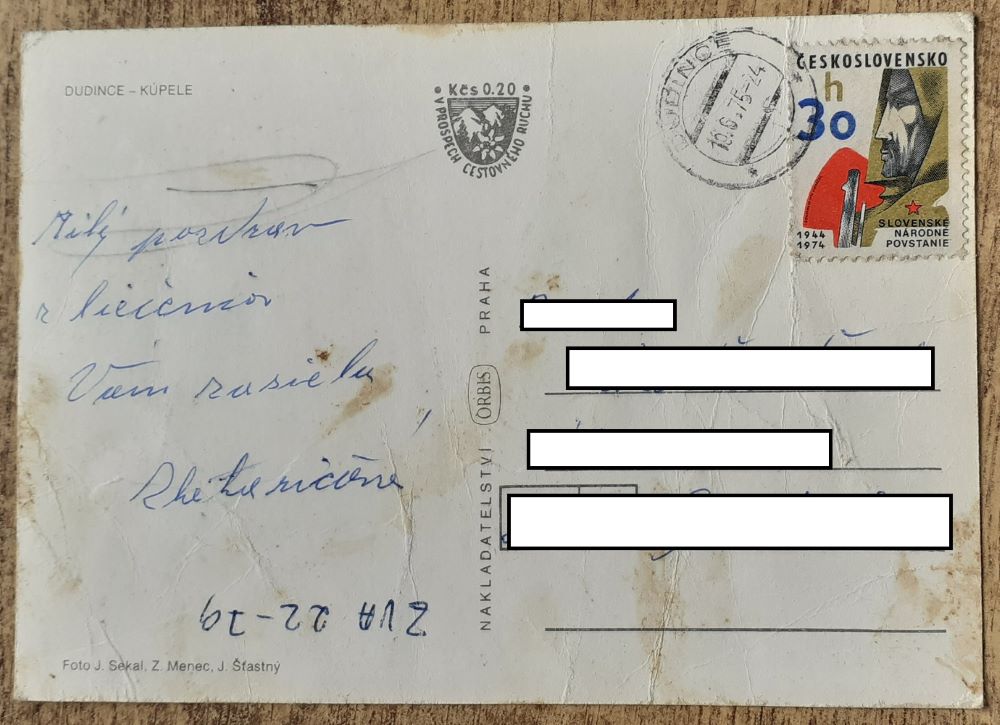 DUDINCE – KÚPELE
Kčs 0.20
V PROSPECH CESTOVNÉHO RUCHU
DUDINCE
10.6.75-24
ČESKOSLOVENSKO
h
30
1944
1974
SLOVENSKÉ
NÁRODNÉ
POVSTANIE
Milý pozdrav
z liečenia
Vám zasiela
NAKLADATELSTVÍ ORBIS PRAHA
ZVA 22-79
Foto J. Sekal, Z. Menec, J. Šťastný